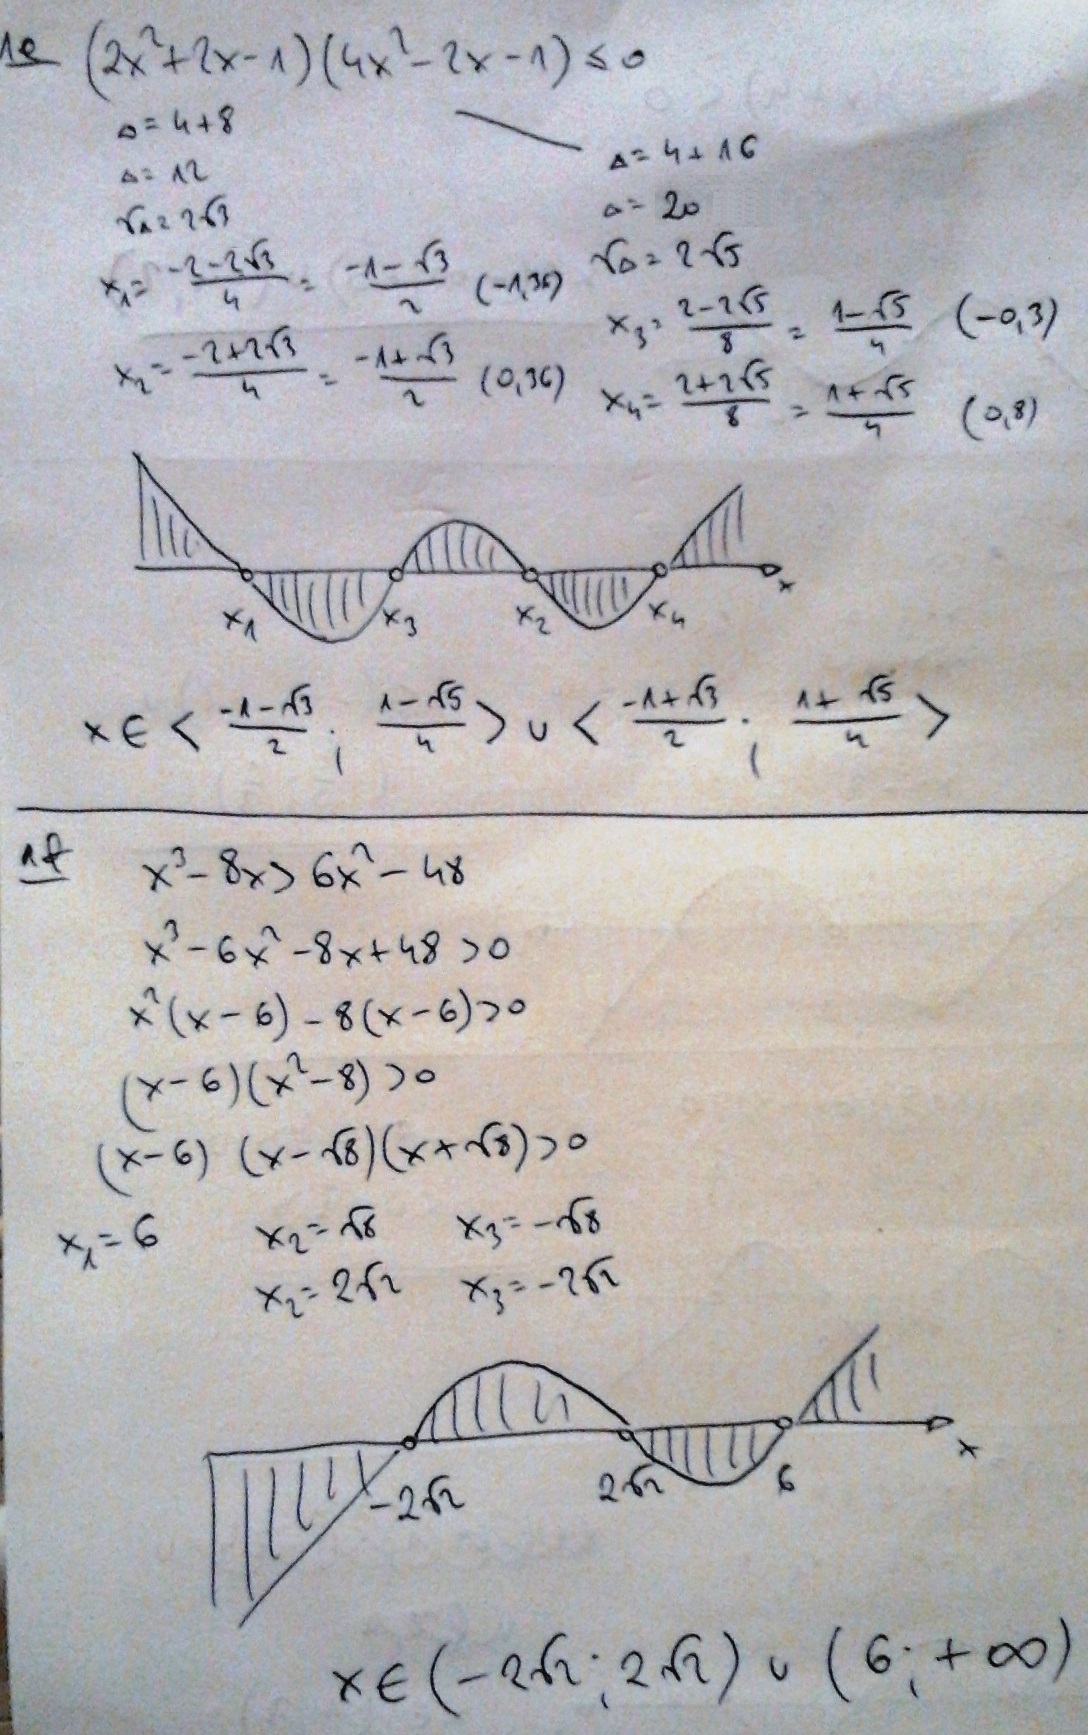 1e (2x²+2x-1)(4x²-2x-1) ≤ 0
Δ= 4+8
Δ= 12
√Δ= 2√3
x₁= (-2-2√3)/4 = (-1-√3)/2 (-1,36)
x₂= (-2+2√3)/4 = (-1+√3)/2 (0,36)
Δ= 4+16
Δ= 20
√Δ= 2√5
x₃= (2-2√5)/8 = (1-√5)/4 (-0,3)
x₄= (2+2√5)/8 = (1+√5)/4 (0,8)
x₁ x₃ x₂ x₄ x
x∈ < (-1-√3)/2 ; (1-√5)/4 > ∪ < (-1+√3)/2 ; (1+√5)/4 >
1f x³-8x > 6x²-48
x³-6x²-8x+48 >0
x²(x-6)-8(x-6)>0
(x-6)(x²-8)>0
(x-6) (x-√8)(x+√8)>0
x₁=6 x₂=√8 x₃=-√8
x₂=2√2 x₃=-2√2
-2√2 2√2 6 x
x∈(-2√2;2√2) ∪ (6;+∞)